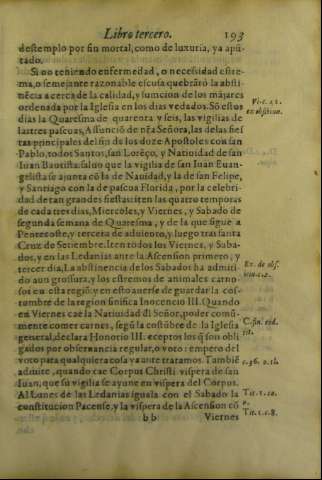 Libro tercero. 193
destemplo por sin mortal, como de luxuria, ya apũ
tado.
Si no teniendo enfermedad, o necesidad estre-
ma, o semejante razonable escusa quebrãrõ la absti
nẽcia a cerca de la calidad, y sumcion de los mãjares
ordenada por la Iglesia en los dias vedados. Sõ estos
dias la Quaresma de quarenta y seis, las vigilias de
las tres pascuas, Assunciõ de nr̃a Señora, las de las fies
tas principales del fin de los doze Apostoles con san
Pablo, todos Santos, san Lorẽço, y Natiuidad de san
Iuan Bautista: saluo que la vigilia de san Iuan Euan-
gelista se ajunta cõ la de Nauidad, y la de san Felipe,
y Santiago con la de pascua Florida, por la celebri-
dad de tan grandes fiestas: iten las quatro temporas
de cada tres dias, Miercoles, y Viernes, y Sabado de
segunda semana de Quaresma, y de la que sigue a
Pentecoste, y tercera de aduiento, y luego tras santa
Cruz de Setiembre. Iten todos los Viernes, y Saba-
dos, y en las Ledanias ante la Ascension primero, y
tercer dia, La abstinencia de los Sabados ha admiti
do aun grossura, y los estremos de animales carno-
sos en esta regiõ: y en esto auerse de guardar la cos-
tumbre de la region sinifica Inocencio III. Quando
en Viernes cae la Natiuidad dl Señor, poder comũ-
mente comer carnes, segũ la costũbre de la Iglesia
general, declara Honorio III. eceptos los q̃ son obli
gados por obseruancia regular, o voto: empero del
voto para qualquiera cosa ya ante tratamos. Tambiẽ
aduite, quando cae Corpus Christi vispera de san
Iuan, que su vigilia se ayune en vispera del Corpus.
Al Lunes de las Ledanias iguala con el Sabado la
constitucion Pacense, y la vispera de la Ascension cõ
bb Viernes
Vi-c. 1. 2.
Ex. de obs.
C. fin. eod.
tit.
c. 96. n. 1b.
Tit. 1. c. 10.
Tit. 1. c. 8.